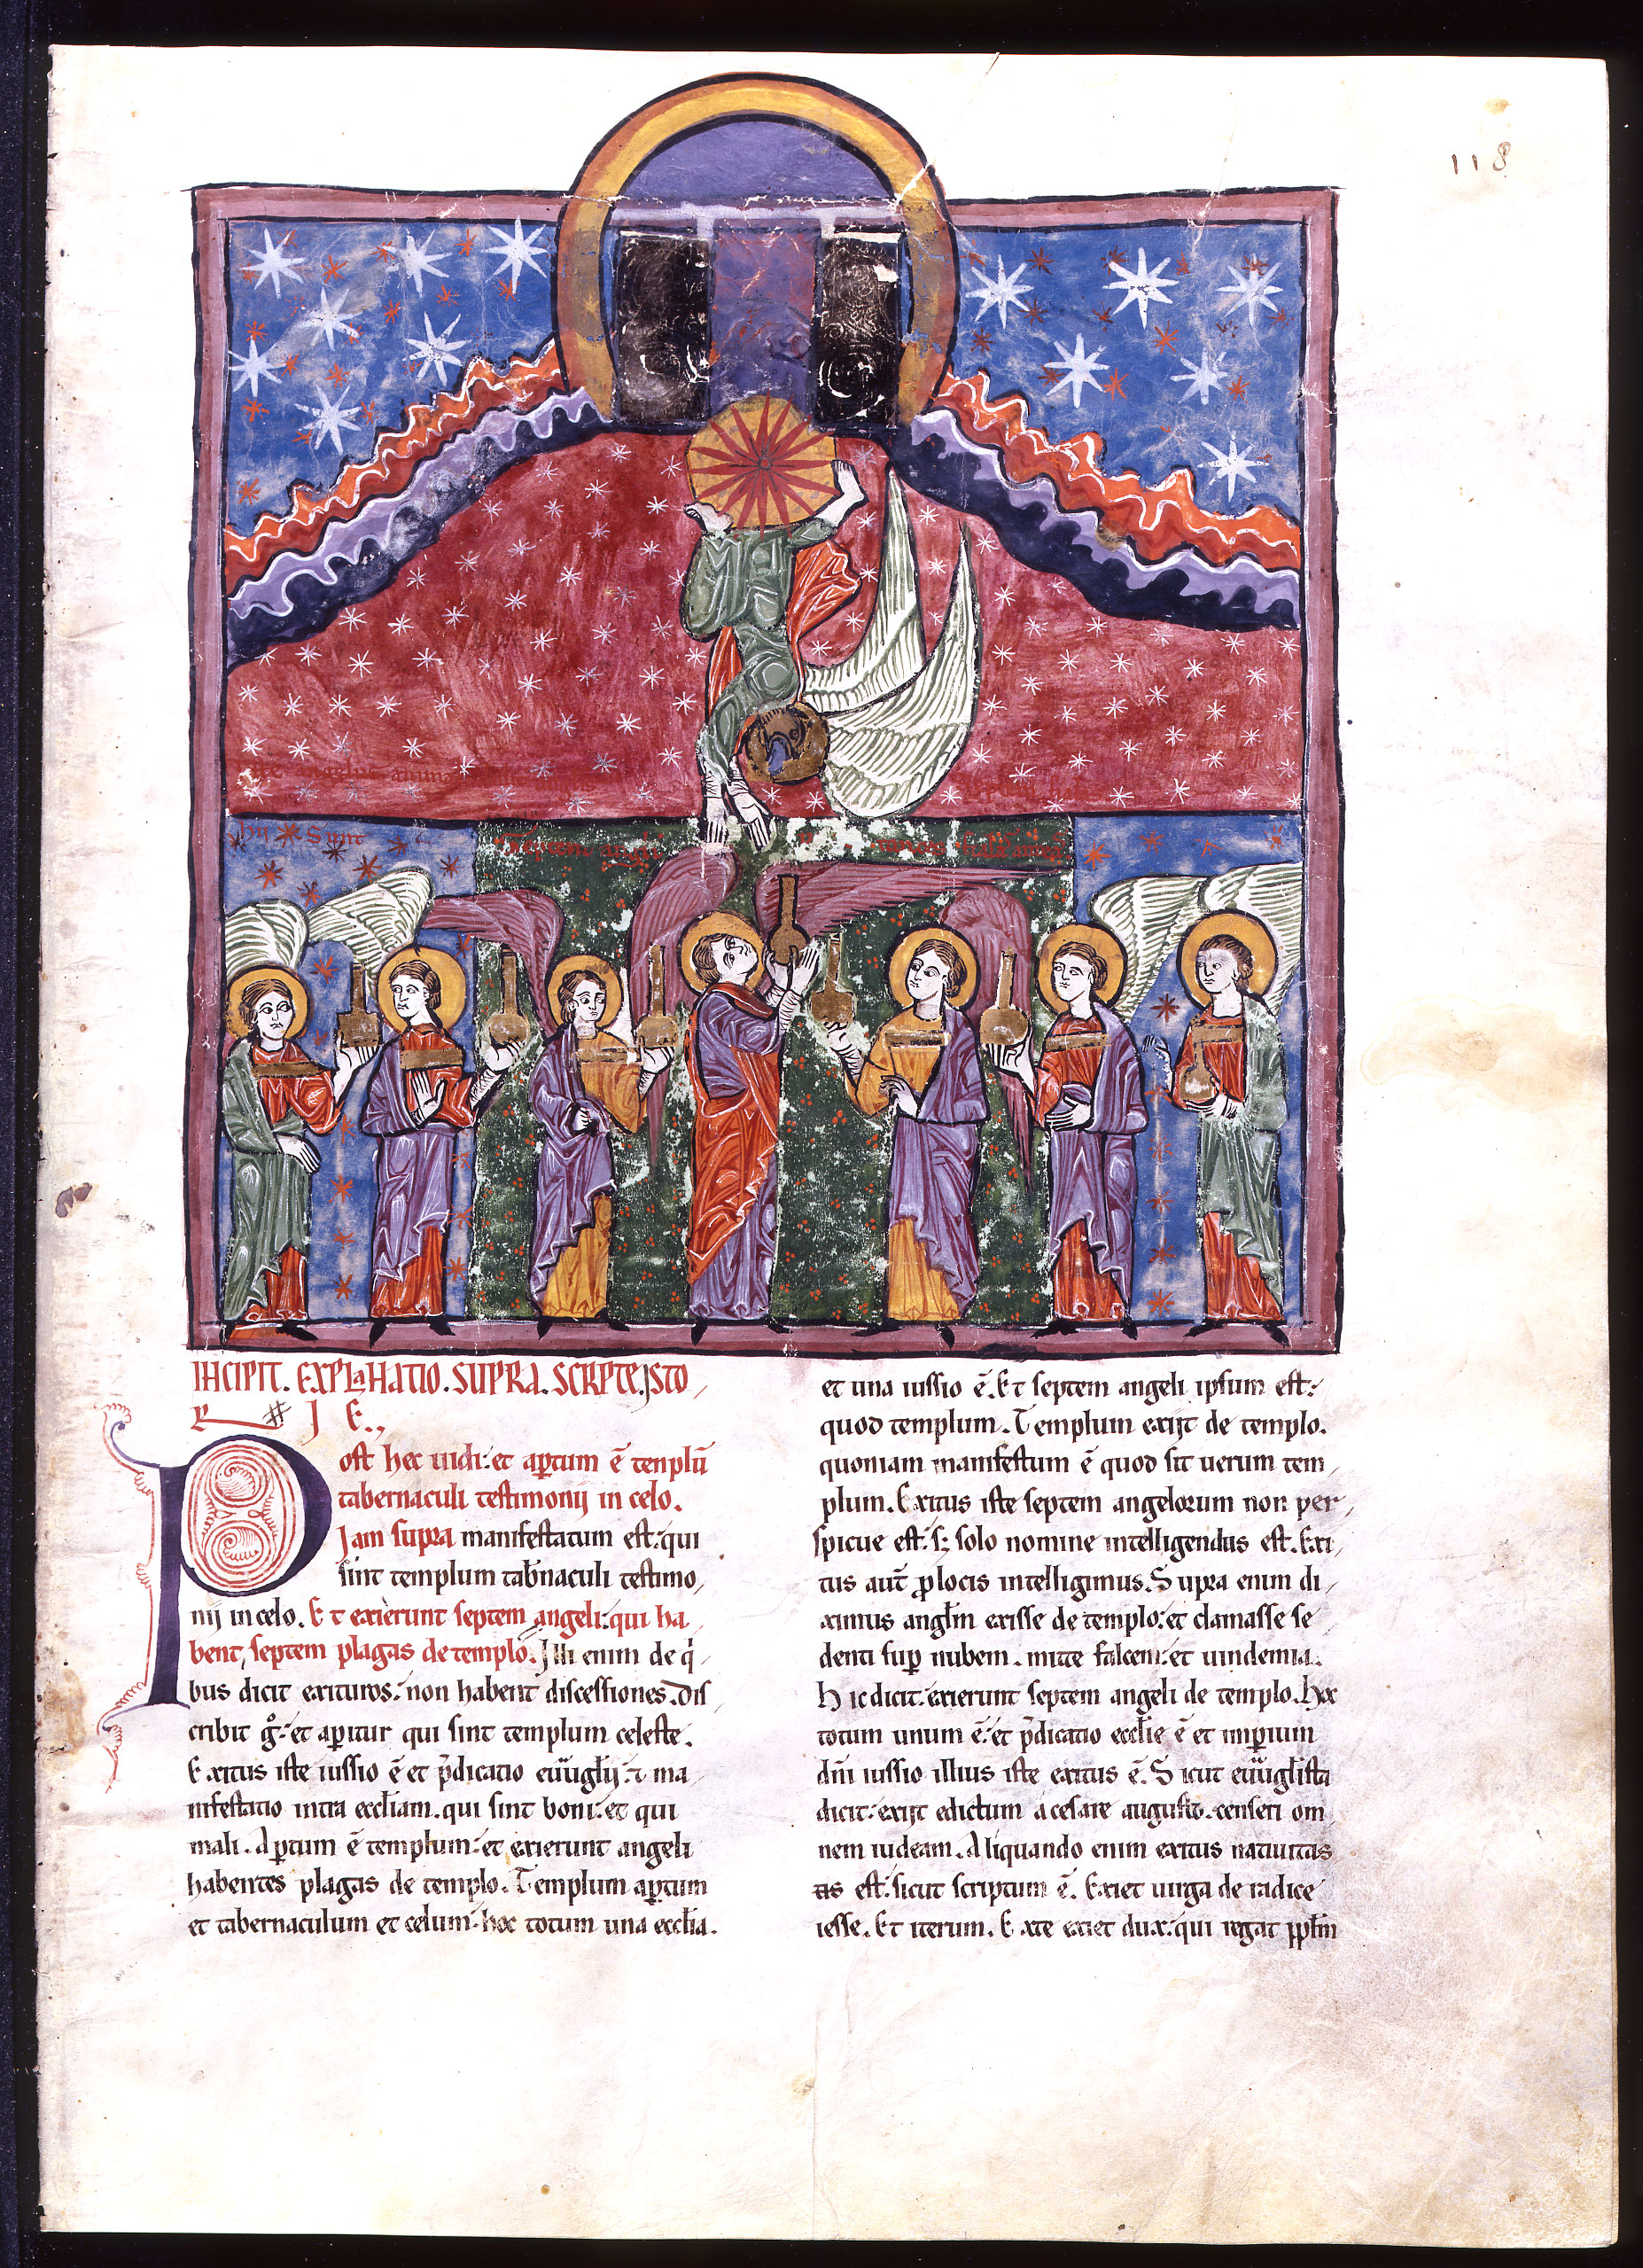 118
hii Sunt
Septem angli
INCIPIT. EXPLaNAtIO. SUPRA. SCRPTE. ISTO
R I E.,
Post hec uidi: et aꝑtum ē tenplū
tabernaculi testimonij in celo.
Jam supra manifestatum est: qui
sint templum tabn̄aculi testimo,
nij in celo. Et exierunt septem angeli: qui ha,
bent, septem plagas de templo. Illi enim de q̇,
bus dicit exituros: non habent discessiones. Dis
cribit gͦ: et aꝑitur qui sint templum celeste.
Exitus iste iussio ē et p̄dicatio euūglij: ⁊ ma,
nifestatio intra eccliam. qui sint boni: et qui
mali. Aꝑtum ē templum: et exierunt angeli
habentes plagas de templo. Templum aꝑtum
et tabernaculum et celum: hoc totum una ecclia.
et una iussio ē. Et septem angeli ipsum est:
quod templum. Templum exijt de templo.
quoniam manifestum ē quod sit uerum tem,
plum. Exitus iste septem angelorum non per,
spicue est: s; solo nomine intelligendus est. Exi,
tus aut̄ ꝓ locis intelligimus. Supra enim di,
ximus anglm̄ exisse de templo: et clamasse se,
denti suꝑ nubem. mitte falcem: et uindemia.
Hic dicit: exierunt septem angeli de templo. Hoc
totum unum ē: et p̄dicatio ecclie ē et imꝑium
dn̄i iussio illius iste exitus ē. Sicut euūglista
dicit: exijt edictum a cesare augusto. censeri om
nem iudeam. Aliquando enim exitus natiuitas
as est: sicut scriptum ē. Exiet uirga de radice
iesse. Et iterum. Exte exiet dux: qui regat pplm̄